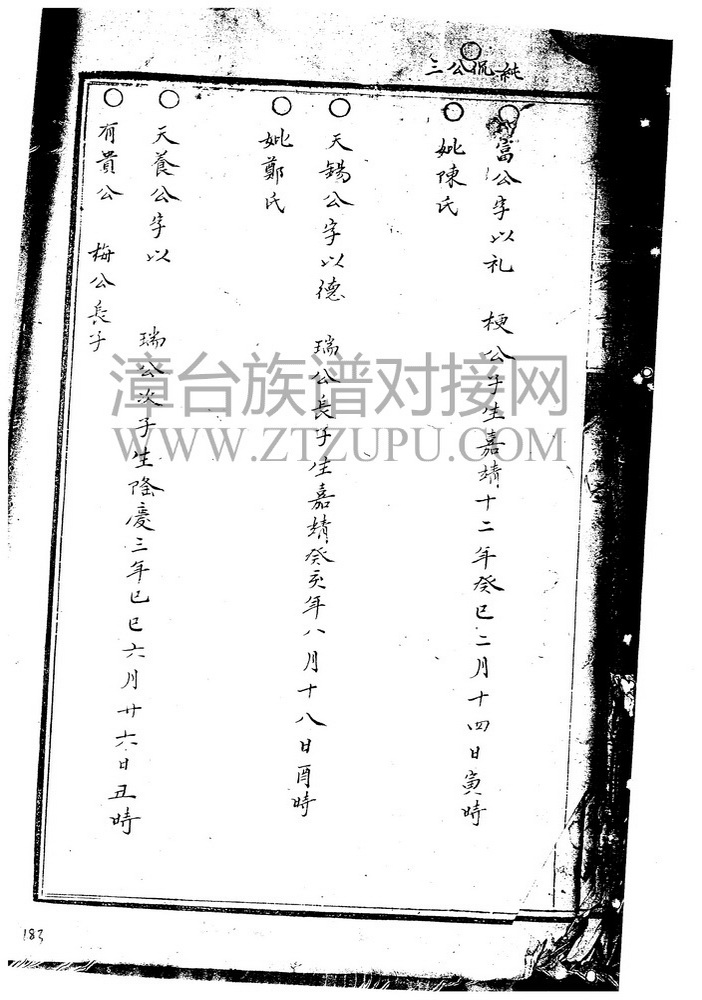 三公侃純
富公字以礼 梗公子生嘉靖十二年癸巳二月十四日寅時
妣陳氏
天錫公字以德 瑞公長子生嘉靖癸亥年八月十八日酉時
妣鄭氏
天養公字以 瑞公次子生隆慶三年己巳六月廿六日丑時
有貴公 梅公長子
漳台族谱对接网
WWW.ZTZUPU.COM
183